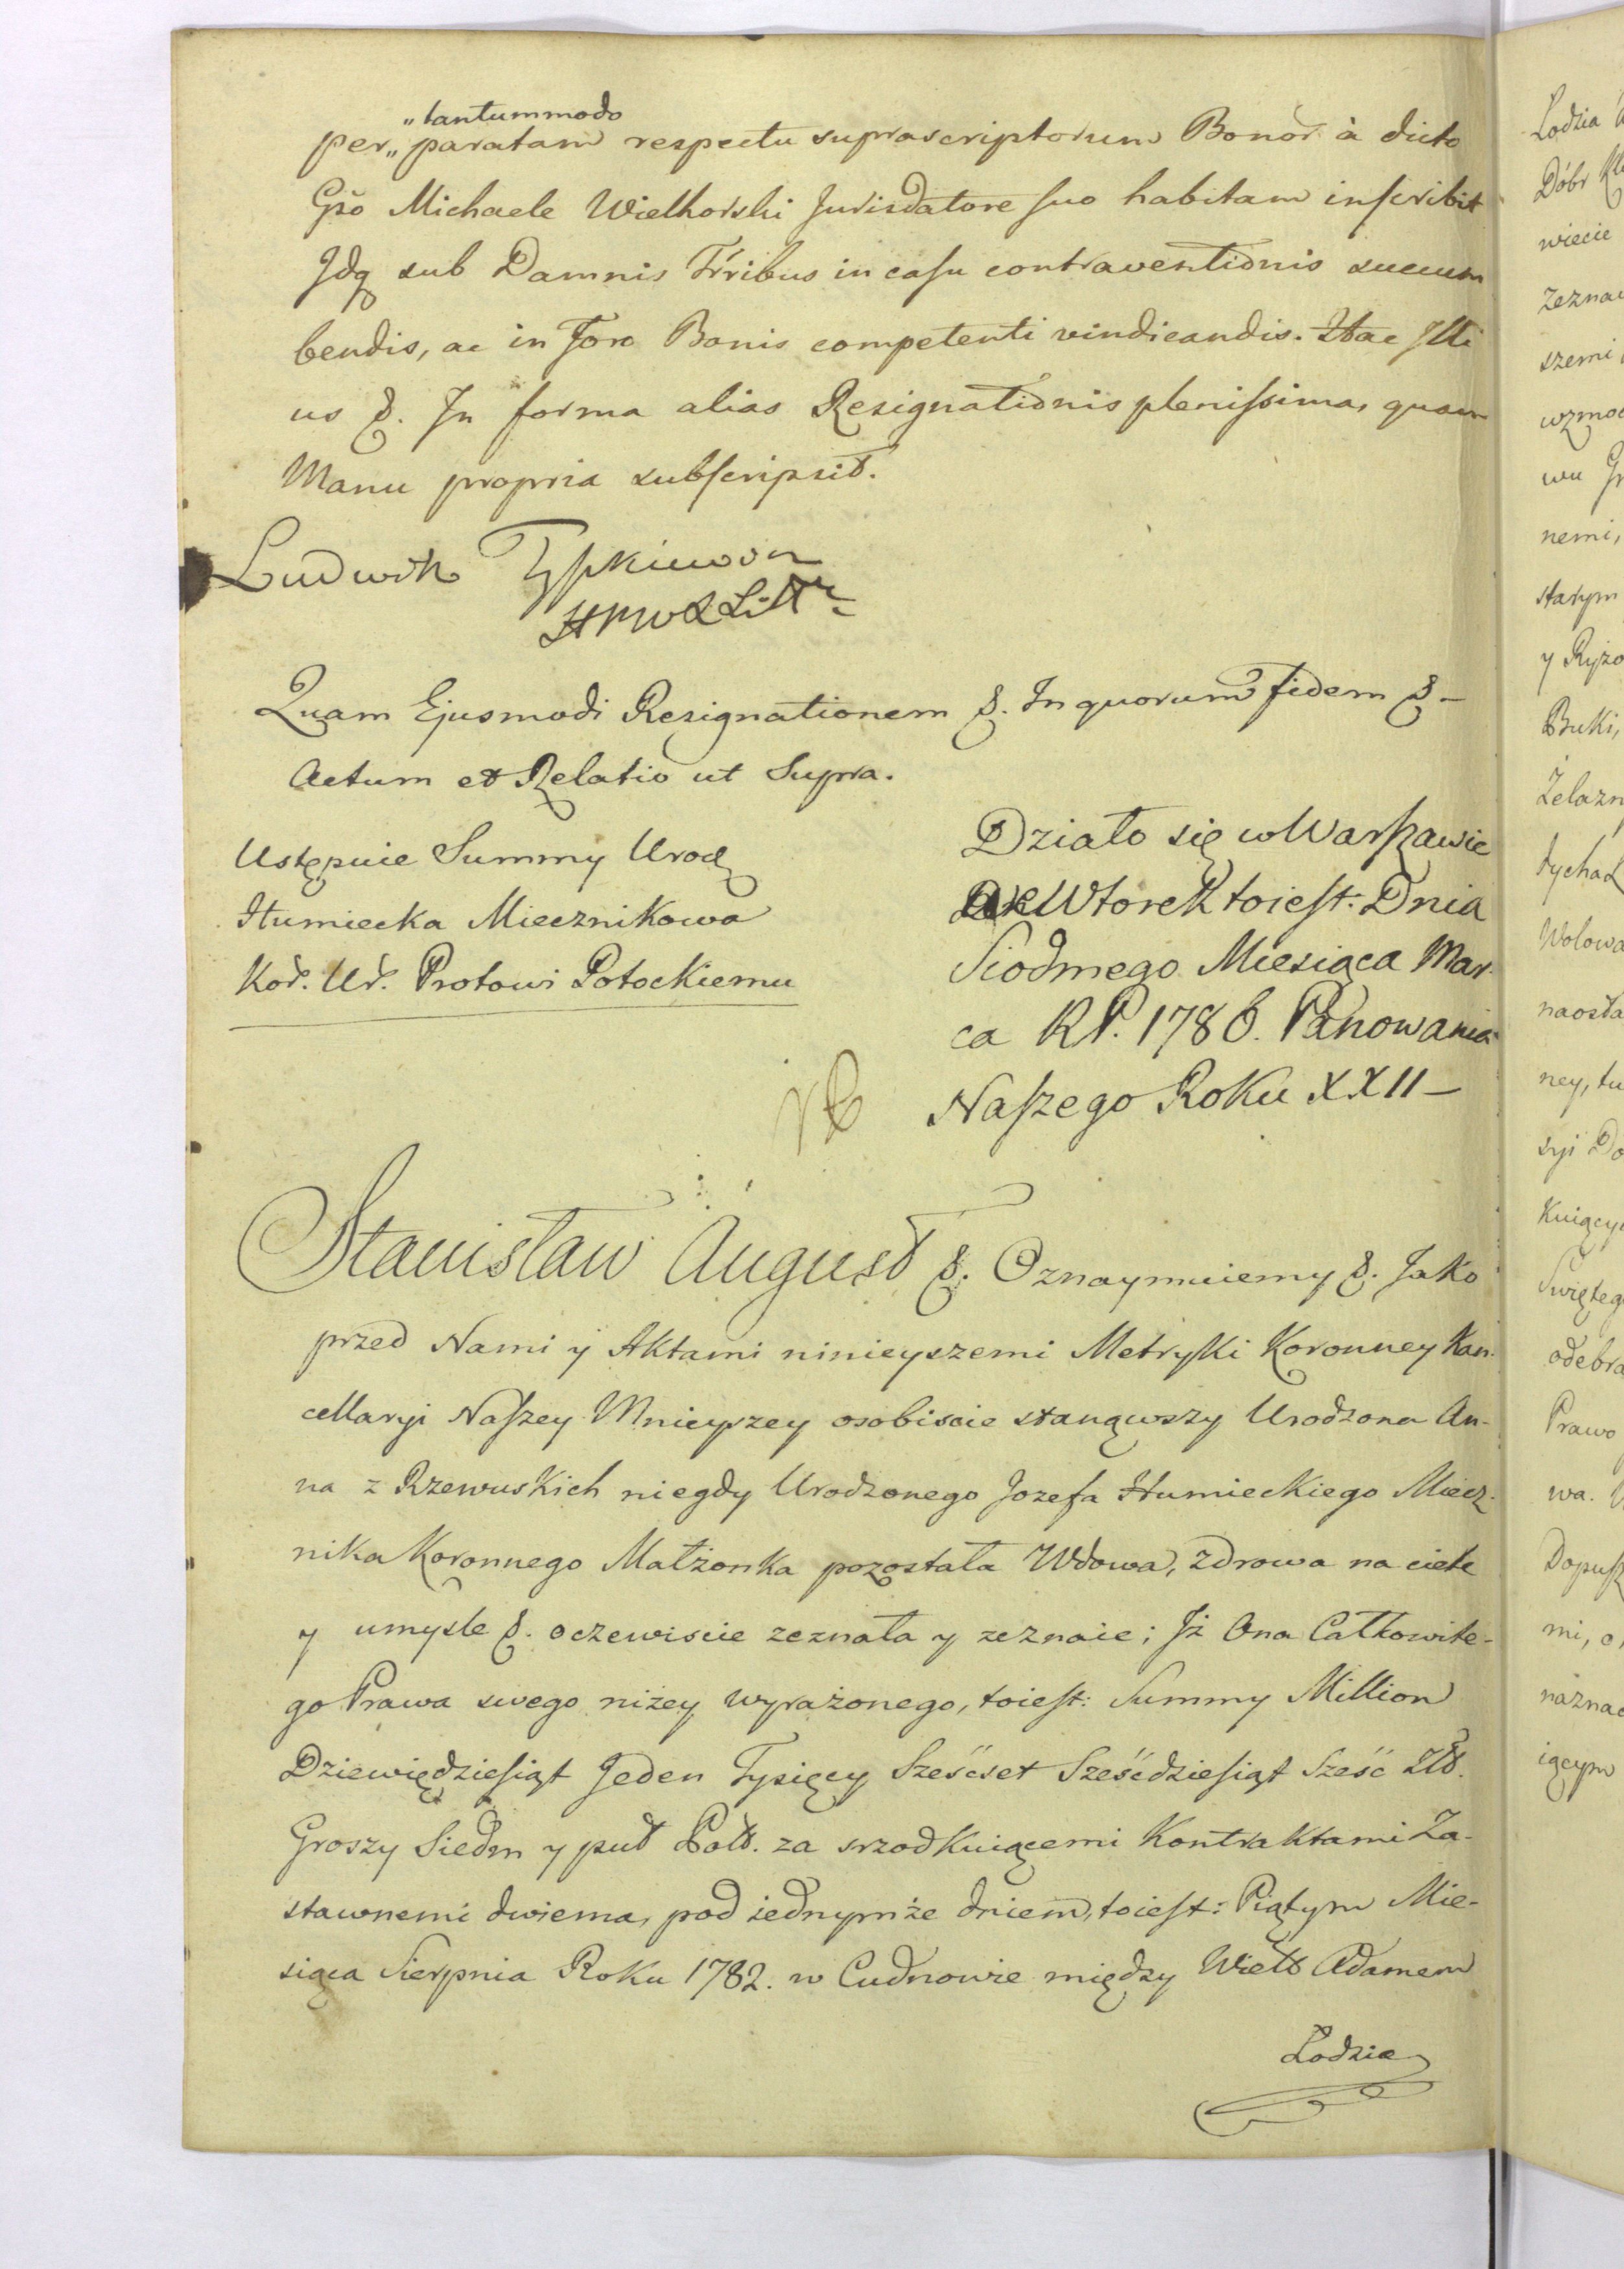 „tantummodo
per„ paratam respectu suprascriptorum Bonor. à dicto
Gso Michaele Wielhorski Jurisdatore suo habitam inscribit
Jdq sub Damnis Trribus in casu contraventionis succum
bendis, ac in Foro Bonis competenti vindicandis. Hac Jlli
us &. Jn forma alias Resignationis plenissima, quam
Manu propria subscripsit.
Ludwik
Quam Ejusmodi Resignationem &. In quorum fidem &-
Actum et Relatio ut Supra.
Ustępuie Summy Urodz
Humiecka Miecznikowa
Kor. Ur. Protowi Potockiemu
Działo się w Warszawie
we Wtorek toiest: Dnia
Siodmego Miesiąca Mar-
ca RP. 1786. Panowania
Naszego Roku XXII-
Stanisław August &. Oznaymuiemy &. Jako
przed Nami y Aktami ninieyszemi Metryki Koronney Kan-
cellaryi Naszey Mnieyszey osobiscie stanąwszy Urodzona An-
na z Rzewuskich niegdy Urodzonego Jozefa Humieckiego Miecz-
nika Koronnego Małżonka pozostała Wdowa, zdrowa na ciele
y umysle &. oczewiscie zeznała y zeznaie; Jż Ona Całkowite-
go Prawa swego niżey wyrażonego, toiest: Summy Million
Dziewiędziesiąt Jeden Tysięcy Sześćset Sześćdziesiąt Sześć Złł.
Groszy Siedm y puł Poll. za srzodkuiącemi Kontraktami Za-
stawnemi dwiema, pod iednymże dniem, toiest: Piątym Mie-
siąca Sierpnia Roku 1782. w Cudnowie między Wielb Adamem
Lodzia
Lodzia
Dóbr
wiecie
zezna
szemi
wzmo
wu
nemi,
starym
y Ryżo
Buki,
Żelazn
tycha
Wolowa
naosta
ney, tu
syi Do
Kuiący
Swięteg
odebra
Prawo
wa.
Dopusz
mi,
naznac
iącym